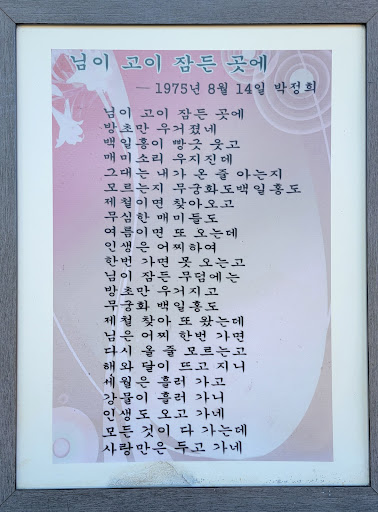 님이 고이 잠든 곳에
— 1975년 8월 14일 박정희
님이 고이 잠든 곳에
방초만 우거졌네
백일홍이 빵긋 웃고
매미소리 우지진데
그대는 내가 온 줄 아는지
모르는지 무궁화도백일홍도
제철이면 찾아오고
무심한 매미들도
여름이면 또 오는데
인생은 어찌하여
한번 가면 못 오는고
님이 잠든 무덤에는
방초만 우거지고
무궁화 백일홍도
제철 찾아 또 왔는데
님은 어찌 한번 가면
다시 올 줄 모르는고
해와 달이 뜨고 지니
세월은 흘러 가고
강물이 흘러 가니
인생도 오고 가네
모든 것이 다 가는데
사랑만은 두고 가네